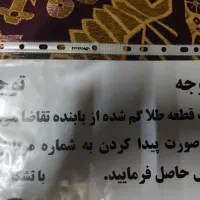 توجه
قطعه طلا گم شده از یابنده تقاضا
صورت پیدا کردن به شماره
حاصل فرمایید.
با تشکر